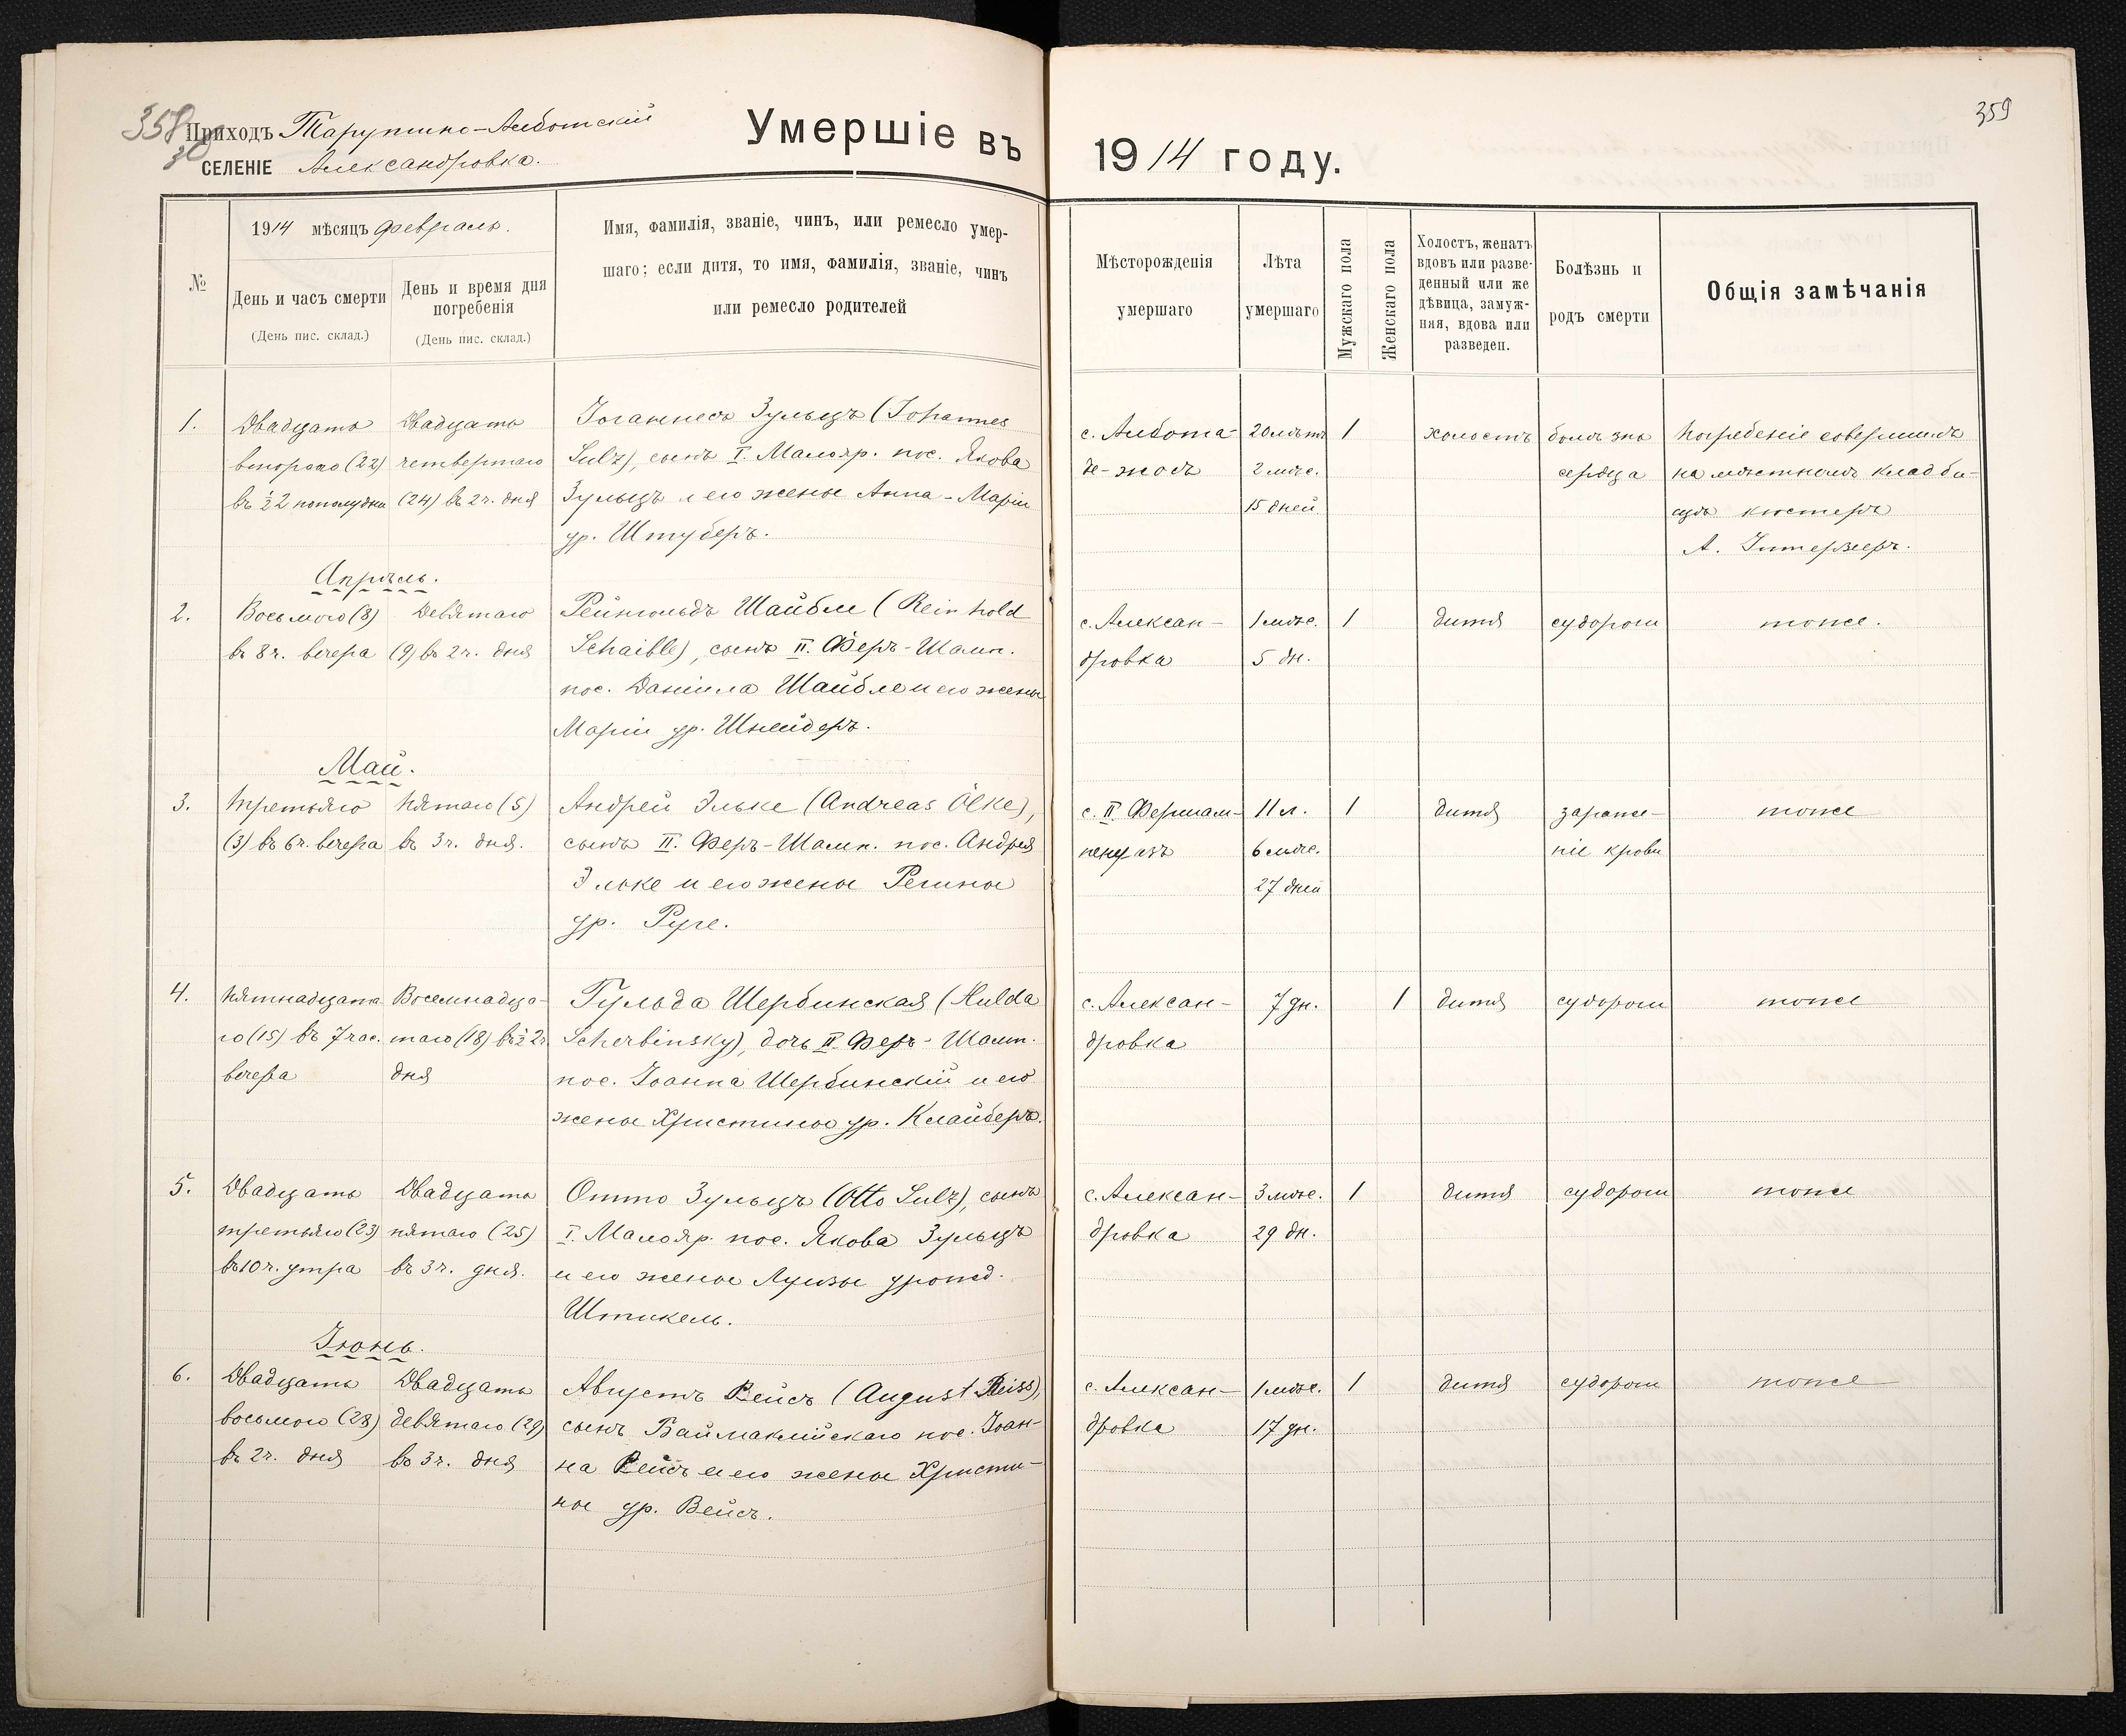 358
30
Приходъ Тарутино-Анботскій
СЕЛЕНІЕ Александровка.
Умершіе въ
1914 году.
359
№
1914 мѣсяцъ февраль.
День и часъ смерти
(День пис. склад.)
День и время дня
погребенія
(День пис. склад.)
Имя, фамилія, званіе, чинъ, или ремесло умер-
шаго; если дитя, то имя, фамилія, званіе, чинъ
или ремесло родителей
Мѣсторожденія
умершаго
Лѣта
умершаго
Мужскаго пола
Женскаго пола
Холостъ, женатъ
вдовъ или разве-
денный или же
дѣвица, замуж-
няя, вдова или
разведен.
Болѣзнь и
родъ смерти
Общія замѣчанія
1.
Двадцать
второго (22)
въ ½ 2 пополудни
Двадцать
четвертаго
(24) въ 2 ч. дня
Іоганнесъ Зульцъ (Johannes
Sulz), сынъ I. Малояр. пос. Якова
Зульцъ и его жены Анна-Маріи
ур. Штуберъ.
с. Анбота-
де-жосъ
20 лѣтъ
2 мѣс.
15 дней.
1
холостъ
болѣзнь
сердца
Погребеніе совершилъ
на мѣстномъ кладби-
щѣ кистеръ
А.
Апрѣль.
2.
Восьмого (8)
въ 8 ч. вечера
Девятаго
(9) въ 2 ч. дня
Рейнгольдъ Шайбле (Reinhold
Schaible), сынъ II. Феръ-Шамп.
пос. Даніила Шайбле и его жены
Маріи ур. Шнейдеръ.
с. Алексан-
дровка
1 мѣс.
5 дн.
1
дитя
судороги
тоже.
Май.
3.
Третьяго
(3) въ 6 ч. вечера
Пятаго (5)
въ 3 ч. дня.
Андрей Эльке (Andreas Ölke),
сынъ II. Феръ-Шамп. пос. Андрея
Эльке и его жены Регины
ур. Руге.
с. II Фершам-
пенуазъ
11 л.
6 мѣс.
27 дней
1
дитя
зараже-
ніе крови
тоже
4.
Пятнадцата-
го (15) въ 7 час.
вечера
Восемнадца-
таго (18) въ ½ 2 ч.
дня
Гульда Щербинская (Hulda
Scherbinsky), дочь II. Феръ-Шамп.
пос. Іоанна Щербинскій и его
жены Христины ур. Клайберъ.
с. Алексан-
дровка
7 дн.
1
дитя
судороги
тоже
5.
Двадцать
третьяго (23)
въ 10 ч. утра
Двадцать
пятаго (25)
въ 3 ч. дня.
Отто Зульцъ (Otto Sulz), сынъ
I. Малояр. пос. Якова Зульцъ
и его жены Луизы урожд.
Штикель.
с. Алексан-
дровка
3 мѣс.
29 дн.
1
дитя
судороги
тоже
Іюнь.
6.
Двадцать
восьмого (28)
въ 2 ч. дня
Двадцать
девятаго (29)
въ 3 ч. дня
Августъ Рейсъ (August Reiss),
сынъ Баймаклійскаго пос. Іоан-
на Рейсъ и его жены Христи-
ны ур. Вейсъ.
с. Алексан-
дровка
1 мѣс.
17 дн.
1
дитя
судороги
тоже